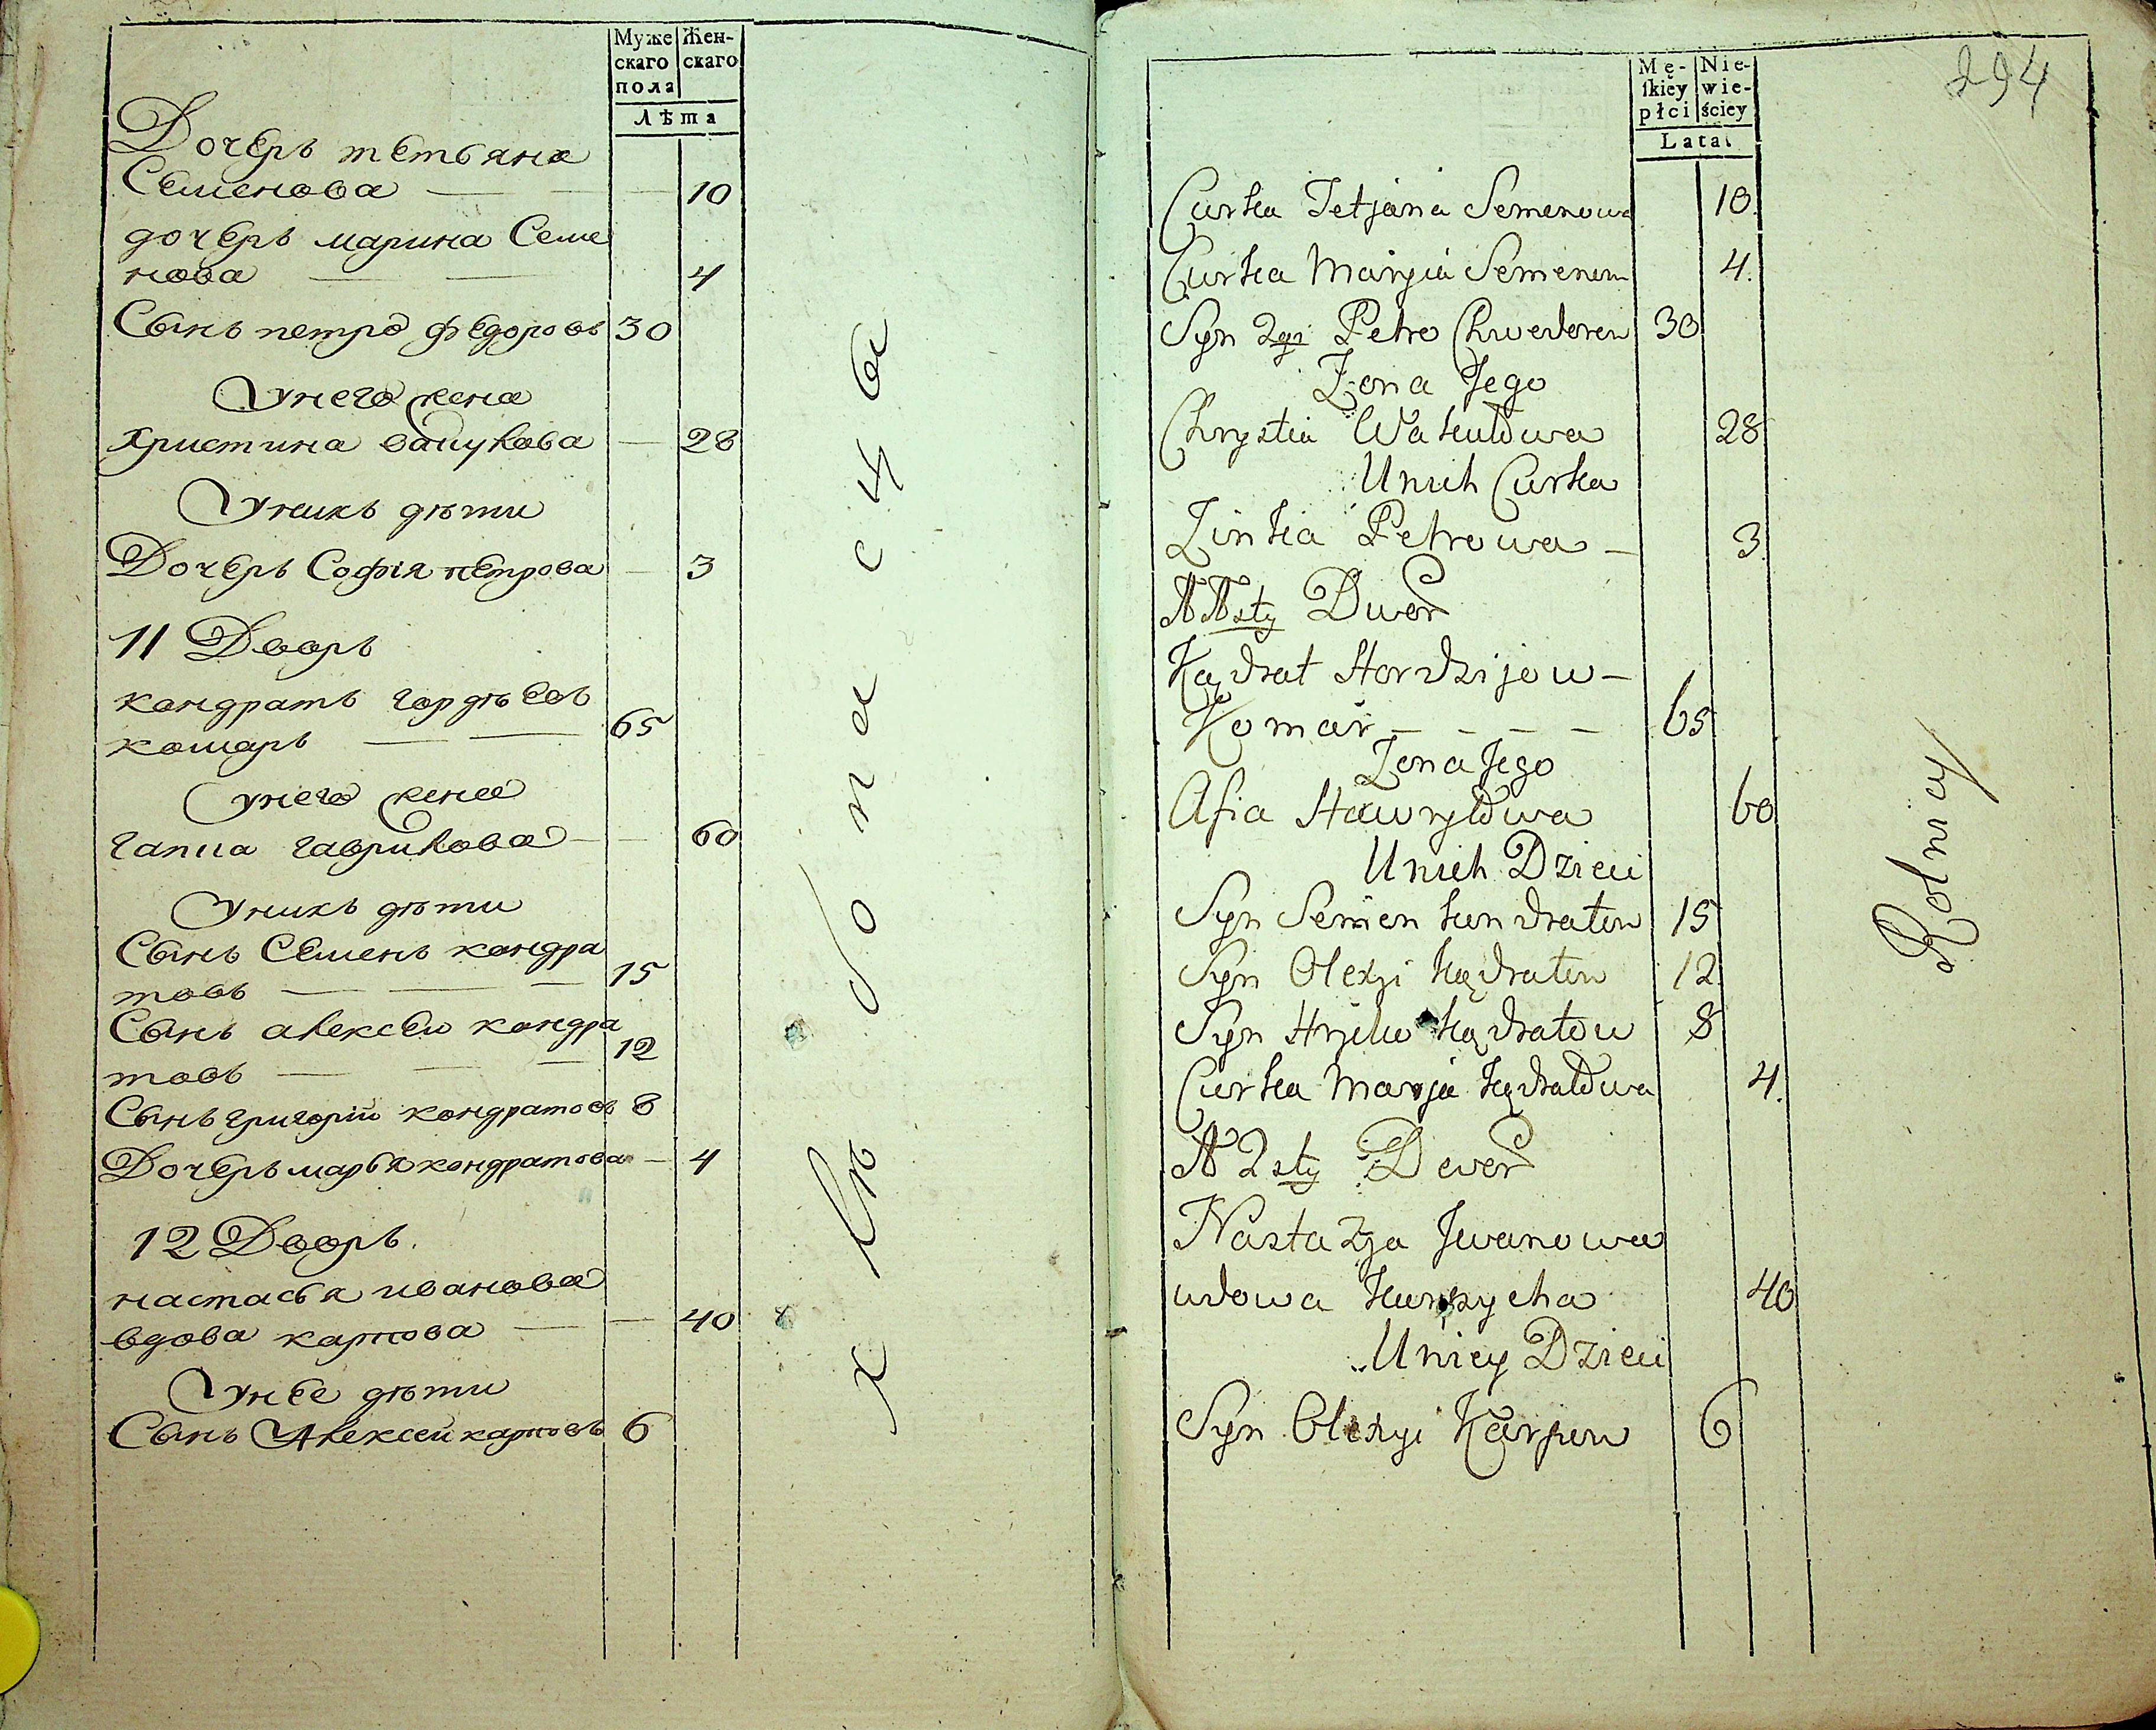 Муже Жен-
скаго скаго
пола
Лѣта
Дочерь тетьяна
Семенова — — — 10
дочерь марина Семе
нова — — 4
Сынъ петро федоровъ 30
Унего жена
Христина вакулова — 28
Унихъ дѣти
Дочерь Софія петрова — 3
11 Дворъ
кондратъ гордѣевъ
комаръ — — 65
унего жена
гапиа гаврилова — — 60
Унихъ дѣти
Сынъ Семенъ кондра
товъ — — — 15
Сынъ алексеи кондра
товъ — — — 12
Сынъ григорій кондратовъ 8
Дочерь марья кондратова — 4
12 Дворъ.
настасья иванова
вдова карпова — — 40
Унее дѣти
Сынъ Алексей карповъ 6
хлѣбопасцы
294
Mę- Nie-
ſkiey wie-
płci ściey
Lata
Curka Tetjana Semenowa 10.
Curka Maryia Semenow 4.
Syn 2gi Petro Chwedorow 30
Zona Jego
Chrystia Wakulowa 28
Unich Curka
Zinka Petrowa — 3.
11sty Dwor
Kądrat Hordzijow —
Komar — — — — 65
Zona Jego
Afia Hawryłowa 60
Unich Dzieci
Syn Semen kundratow 15
Syn Olexyi kądratow 12.
Syn Hryhor kądratow 8
Curka Marja kądratowa 4.
12sty Dwor
Nastazya Jwanowa
wdowa Karpycha 40
Uniey Dzieci
Syn Olexyi Karpow 6
Rolnicy